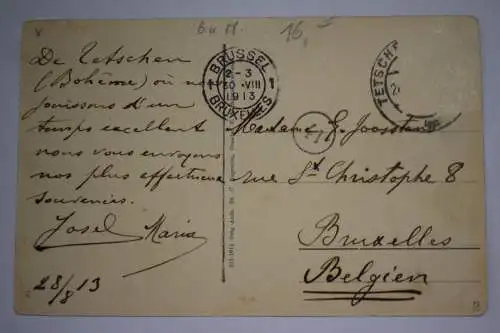 De Tetschen
(Bohême) où nous
jouissons d'un
temps excellent
nous vous envoyons
nos plus affectueux
souvenirs.
Josel Maria
28/8 13
BRÜSSEL
2-3
30 VIII
1913
BRUXELLES
1
TETSCHE
Madame F. Joostens
rue St Christophe 8
Bruxelles
Belgien
15